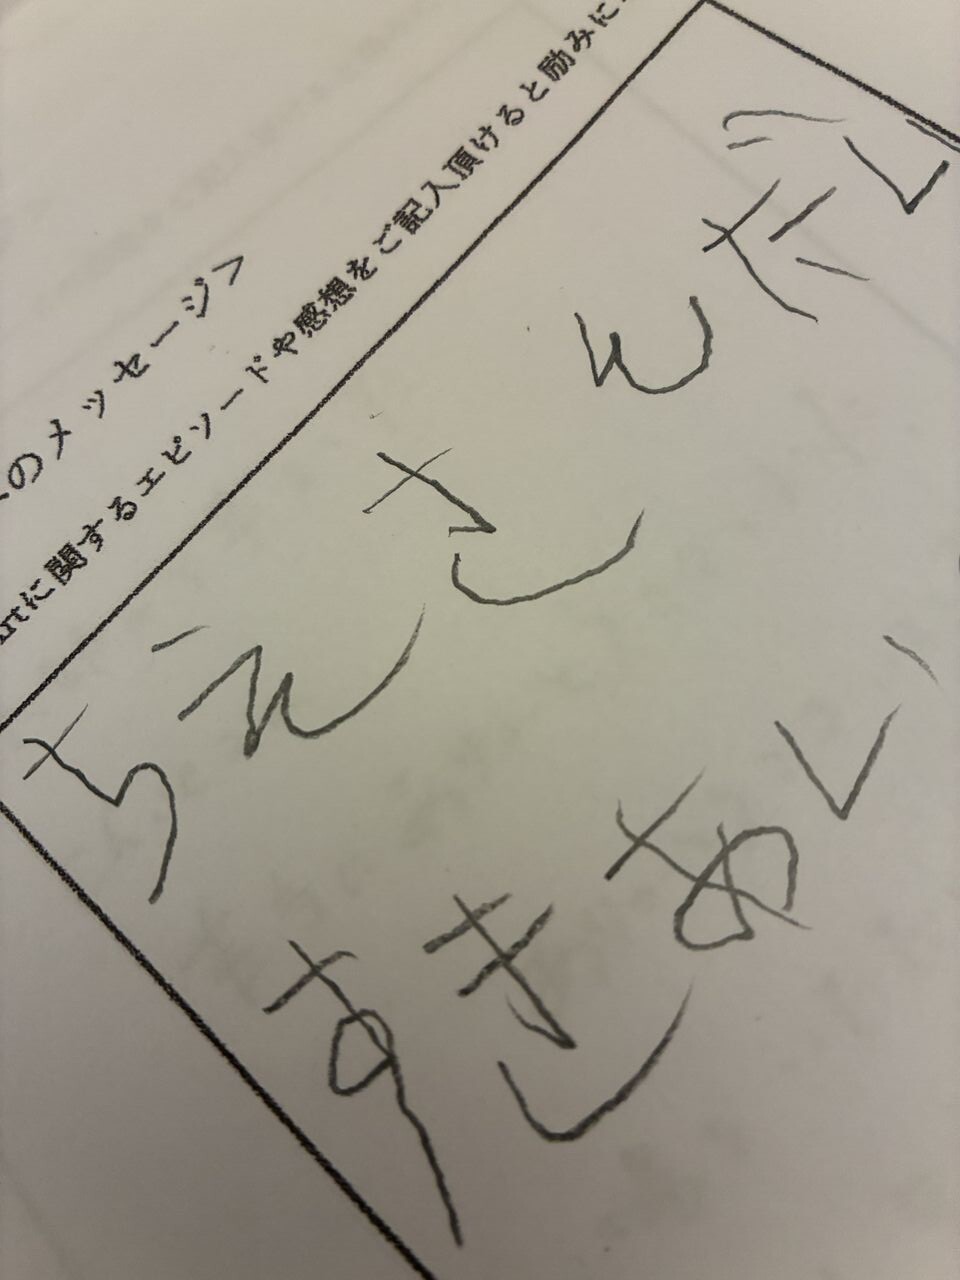 のメッセージ>
artに関するエピソードや感想をご記入頂けると励みに
ちえさんだい
すきあい